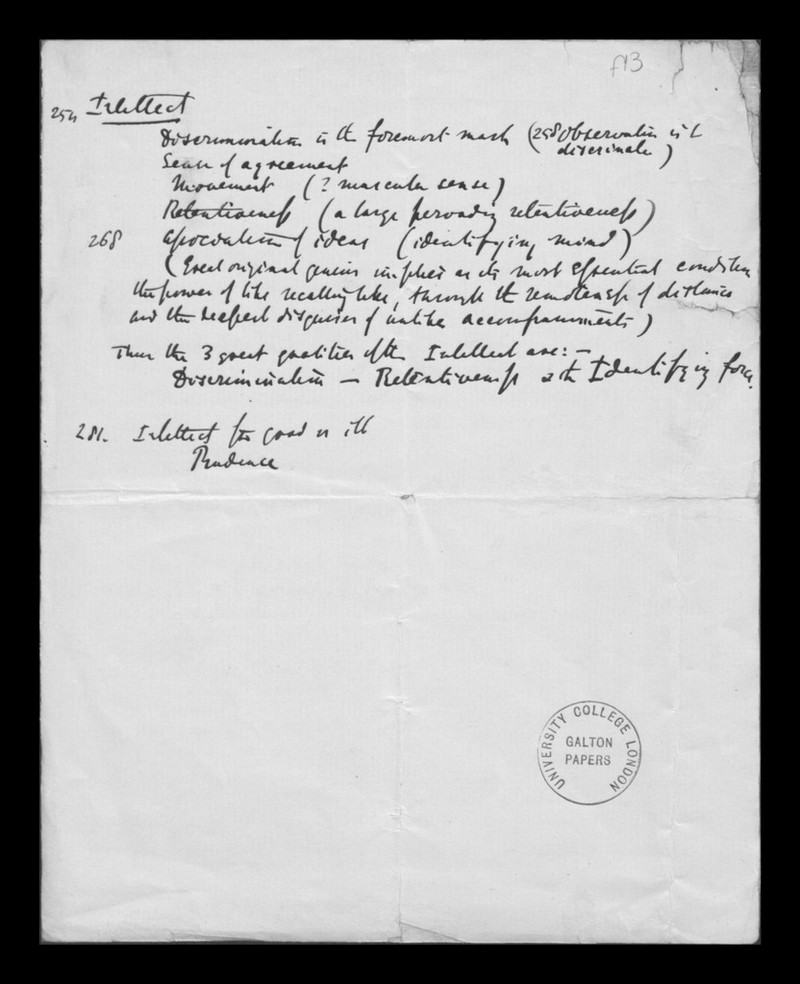 f13
254 Intellect
Discrimination is the foremost mark (258 Observation is to
discriminate)
Sense of agreement
Movement (? muscular sense)
Retentiveness (a large pervading retentiveness)
268 Association of ideas (identifying mind)
(Great original genius implies as its most essential condition
the power of like recalling like, through the remoteness of distance
and the deepest disguises of unlike accompaniments)
Thus the 3 great qualities of the Intellect are:—
Discrimination — Retentiveness & the Identifying force.
281. Intellect for good or ill
Prudence
UNIVERSITY COLLEGE LONDON
GALTON
PAPERS